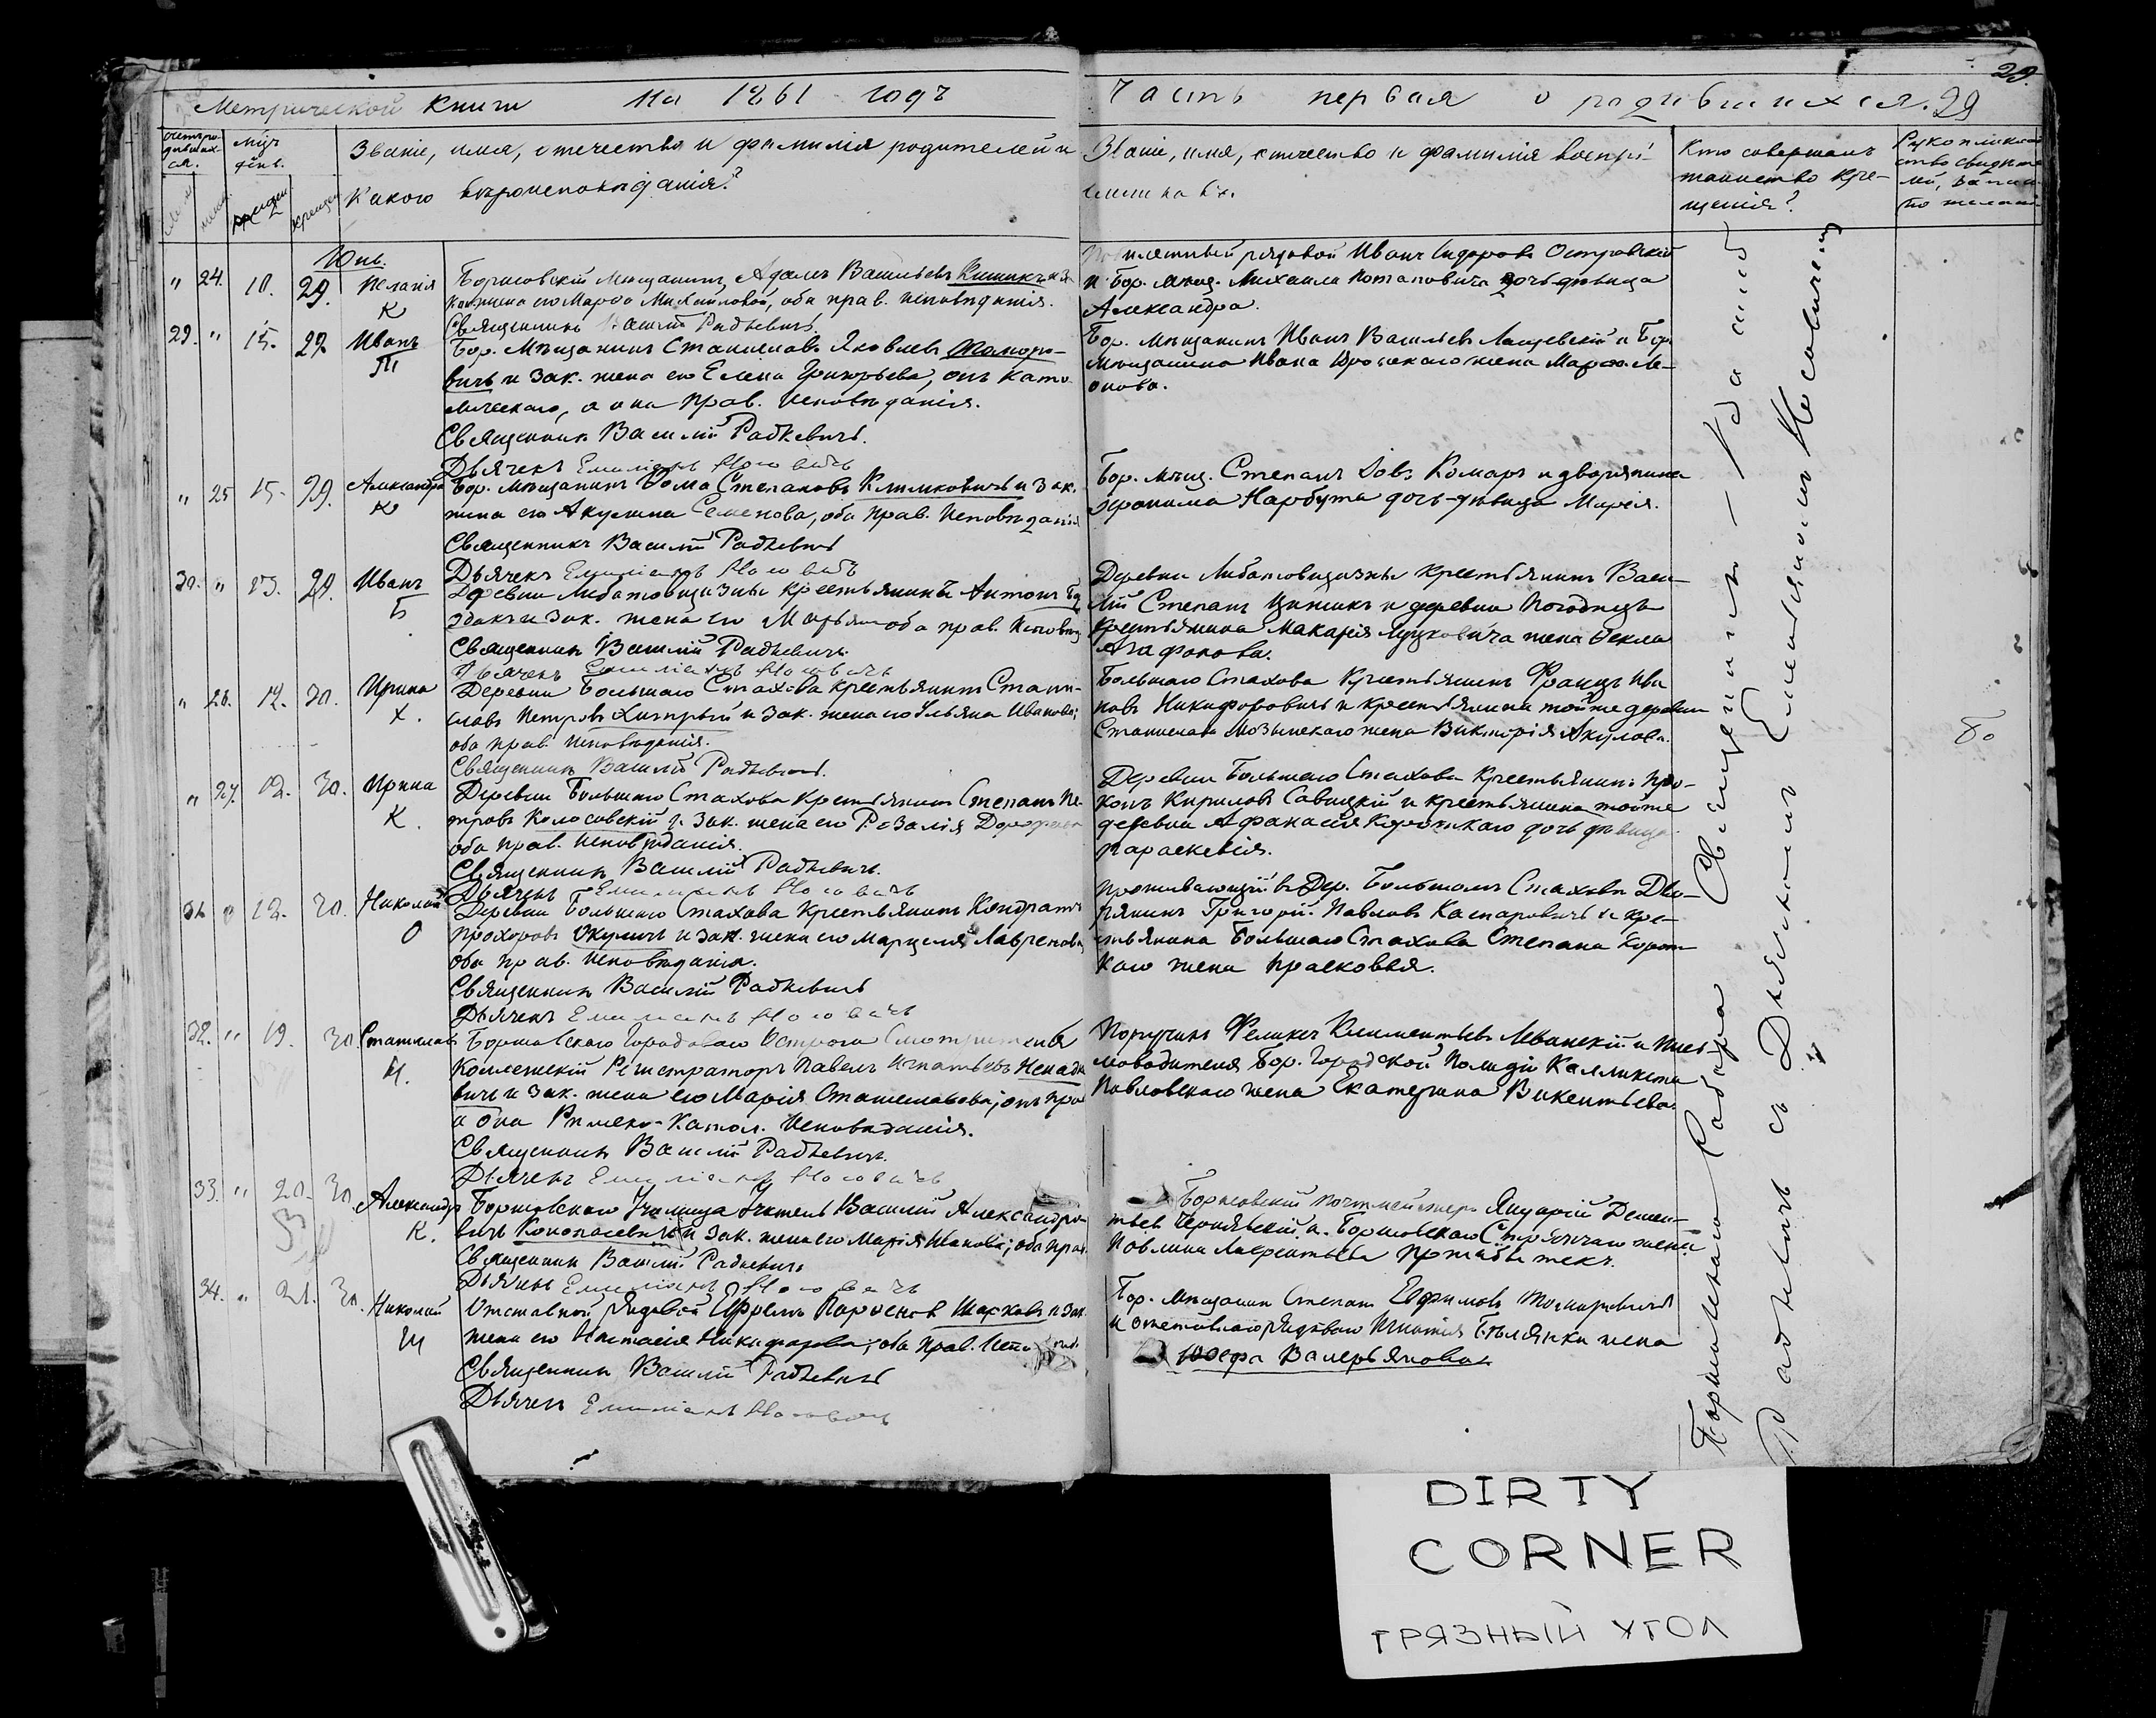 29.
Метрической книги на 1861 годъ
Часть первая о родившихся. 29
Званіе, имя, отчество и фамилія родителей и
какого вѣроисповѣданія?
Званіе, имя, отчество и фамилія воспрі-
емниковъ.
Кто совершалъ
таинство кре-
щенія?
Рукоприклад-
ство свидѣте-
лей
Юнь.
" 24. 10. 29. Пелагія
К
Борисовскій Мѣщанинъ, Адамъ Васильевъ
жена его Марѳа Михайловой, оба прав. исповѣданія.
Священникъ Василій Радкевичъ.
рядовой Иванъ Сидоровъ Островскій
и Бор. мѣщ. Михаила Потаповича дочь-дѣвица
Александра.
29. " 15. 29. Иванъ
Бор. Мѣщанинъ Станиславъ Яковлевъ
вичъ и зак. жена его Елена Григорьева, онъ като-
лическаго, а она прав. исповѣданія.
Священникъ Василій Радкевичъ.
Дьячекъ Емиліанъ Носовичъ
Бор. Мѣщанинъ Иванъ Васильевъ Лащевскій и Бор.
Мѣщанина Ивана жена Марѳа Ле-
онова.
" 25 15. 29. Александра
К
Бор. Мѣщанинъ Ѳома Степановъ Климковичъ и зак.
жена его Акулина Семенова, оба прав. исповѣданія
Священникъ Василій Радкевичъ
Дьячекъ Емиліанъ Носовичъ
Бор. мѣщ. Степанъ Комаръ и дворянина
Іеронима Нарбута дочь-дѣвица Марія.
30. " 15. 29. Иванъ
Б
Деревни крестьянинъ Антонъ
и зак. жена его Марья оба прав. исповѣд
Священникъ Василій Радкевичъ.
Дьячекъ Емиліанъ Носовичъ
Деревни крестьянинъ Васи-
лій Степанъ и деревни
крестьянина Макарія Луцковича жена Ѳекла
Агафонова.
" 26. 12. 30. Ирина
Х.
Деревни Большаго Стахова крестьянинъ Стани-
славъ Петровъ Хитрый и зак. жена его Ульяна Иванова;
оба прав. исповѣданія.
Священникъ Василій Радкевичъ.
Большаго Стахова Крестьянинъ Францъ Ива
новъ Никифоровичъ и крестьянина тойже деревни
Станислава Мозынскаго жена Викторія Акулова.
" 27. 12. 30. Ирина
К.
Деревни Большаго Стахова Крестьянинъ Степанъ Пе-
тровъ Колосовскій и зак. жена его Розалія
оба прав. исповѣданія.
Священникъ Василій Радкевичъ.
Дьячекъ Емиліанъ Носовичъ
Деревни Большаго Стахова Крестьянинъ Про-
копъ Кириловъ Савицкій и крестьянина тойже
деревни Афанасія дочь дѣвица
Параскевія.
31. " 12. 30. Николай
О
Деревни Большаго Стахова Крестьянинъ Кондратъ
Прохоровъ Окуличъ и зак. жена его Марцеля Лавренова
оба прав. исповѣданія.
Священникъ Василій Радкевичъ
Дьячекъ Емиліанъ Носовичъ
Проживающій в дер. Большомъ Стаховѣ Дво-
рянинъ Григорій Павловъ Каспаровичъ и кре-
стьянина Большаго Стахова Степана
жена Прасковья.
32. " 19. 30. Станиславъ
Н.
Борисовскаго Городоваго Острога Смотритель
Коллежскій Регистраторъ Павелъ Игнатьевъ
вичъ и зак. жена его Марія Станиславова; онъ прав
а она Римско-Катол. исповѣданія.
Священникъ Василій Радкевичъ.
Дьячекъ Емиліанъ Носовичъ
Поручикъ Феликсъ Климентьевъ и Пись-
моводителя Бор. Городской Полиціи Калликста
Павловскаго жена Екатерина Викентьева.
33. " 20. 30. Александръ
К.
Борисовскаго Училища Учитель Василій Александро-
вичъ и зак. жена его Марія Иванова; оба прав.
Священникъ Василій Радкевичъ
Дьячекъ Емиліанъ Носовичъ
Борисовскій почтмейстеръ Януарій Демен-
тьев Чернявскій и Борисовскаго Стряпчаго жена
Павлина Лаврентьева
34. " 21. 30. Николай
Ш
Отставной Рядовой Ефремъ Шарковъ и зак.
жена его Настасія Никифорова; оба прав.
Священникъ Василій Радкевичъ
Дьячекъ Емиліанъ Носовичъ
Бор. мѣщанинъ Степанъ Ефимовъ
и отставнаго рядоваго Игнатія Бѣлянки жена
Юзефа Валерьянова.
Священникъ
Радкевичъ съ Дьячкомъ Емиліаномъ Носовичемъ
DIRTY
CORNER
ГРЯЗНЫЙ УГОЛ